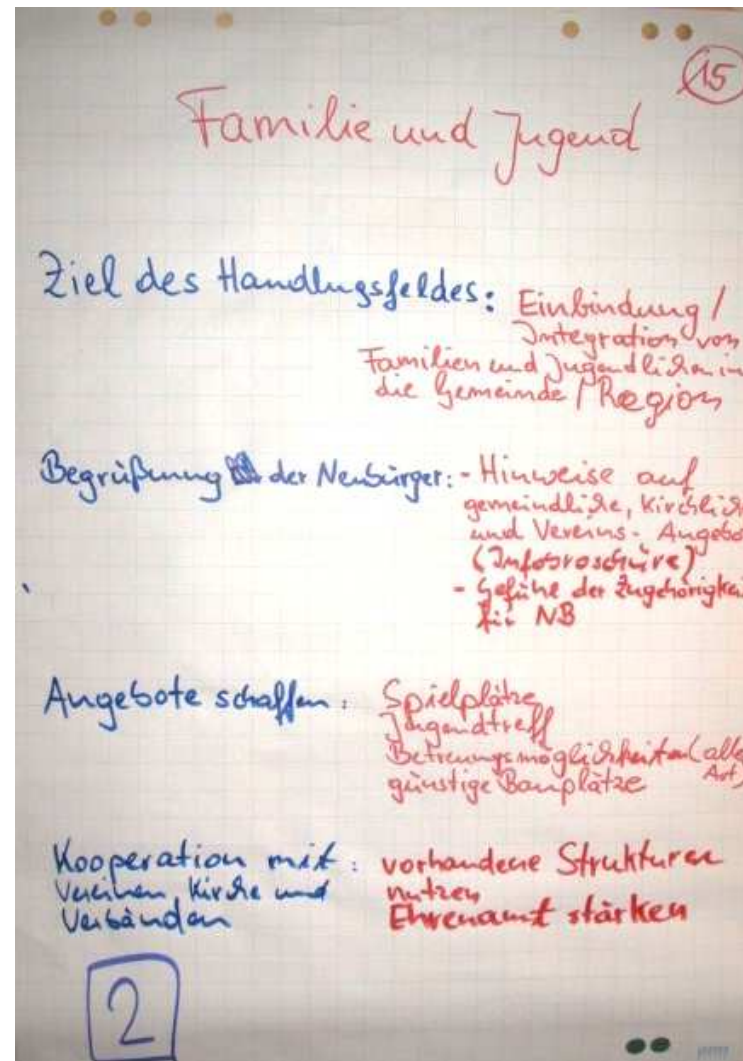 15
Familie und Jugend
Ziel des Handlugsfeldes: Einbindung /
Integration von
Familien und Jugendlichen in
die Gemeinde / Region
Begrüßung der Neubürger: - Hinweise auf
gemeindliche, Kirchlich
und Vereins- Angebo
(Infobroschüre)
- Gefühl der Zugehörigkei
für NB
Angebote schaffen: Spielplätze
Jugendtreff
Betreuungsmöglichkeiten (alle
günstige Bauplätze Art)
Kooperation mit: vorhandene Strukturen
Vereinen, Kirche und nutzen
Verbänden Ehrenamt stärken
2